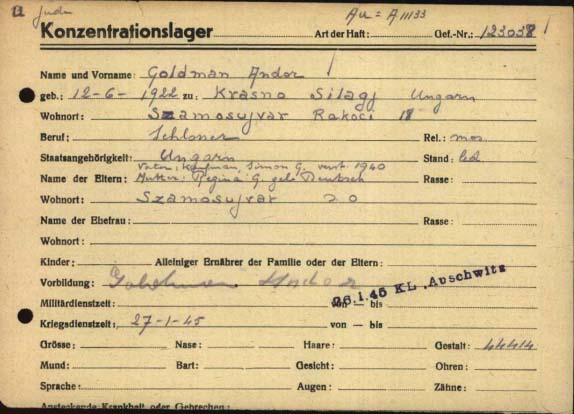 Jude Au = A 11133
Konzentrationslager Art der Haft: Gef.-Nr.: 123038
Name und Vorname: Goldman Andor
geb.: 12-6-1922 zu: Krasno Silagj Ungarn
Wohnort: Szamosujvar Rakoci 18
Beruf: Schlosser Rel.: mos.
Staatsangehörigkeit: Ungarn Stand: led
Vater: Kaufman, Simon G. verst. 1940
Name der Eltern: Mutter: Regina G. geb. Deutsch Rasse:
Wohnort: Szamosujvar
Name der Ehefrau: Rasse:
Wohnort:
Kinder: Alleiniger Ernährer der Familie oder der Eltern:
Vorbildung: Goldman Andor
26.1.45 KL. Auschwitz
Militärdienstzeit: von — bis
Kriegsdienstzeit: 27-1-45 von — bis
Grösse: Nase: Haare: Gestalt: 44414
Mund: Bart: Gesicht: Ohren:
Sprache: Augen: Zähne:
Ansteckende Krankheit oder Gebrechen: